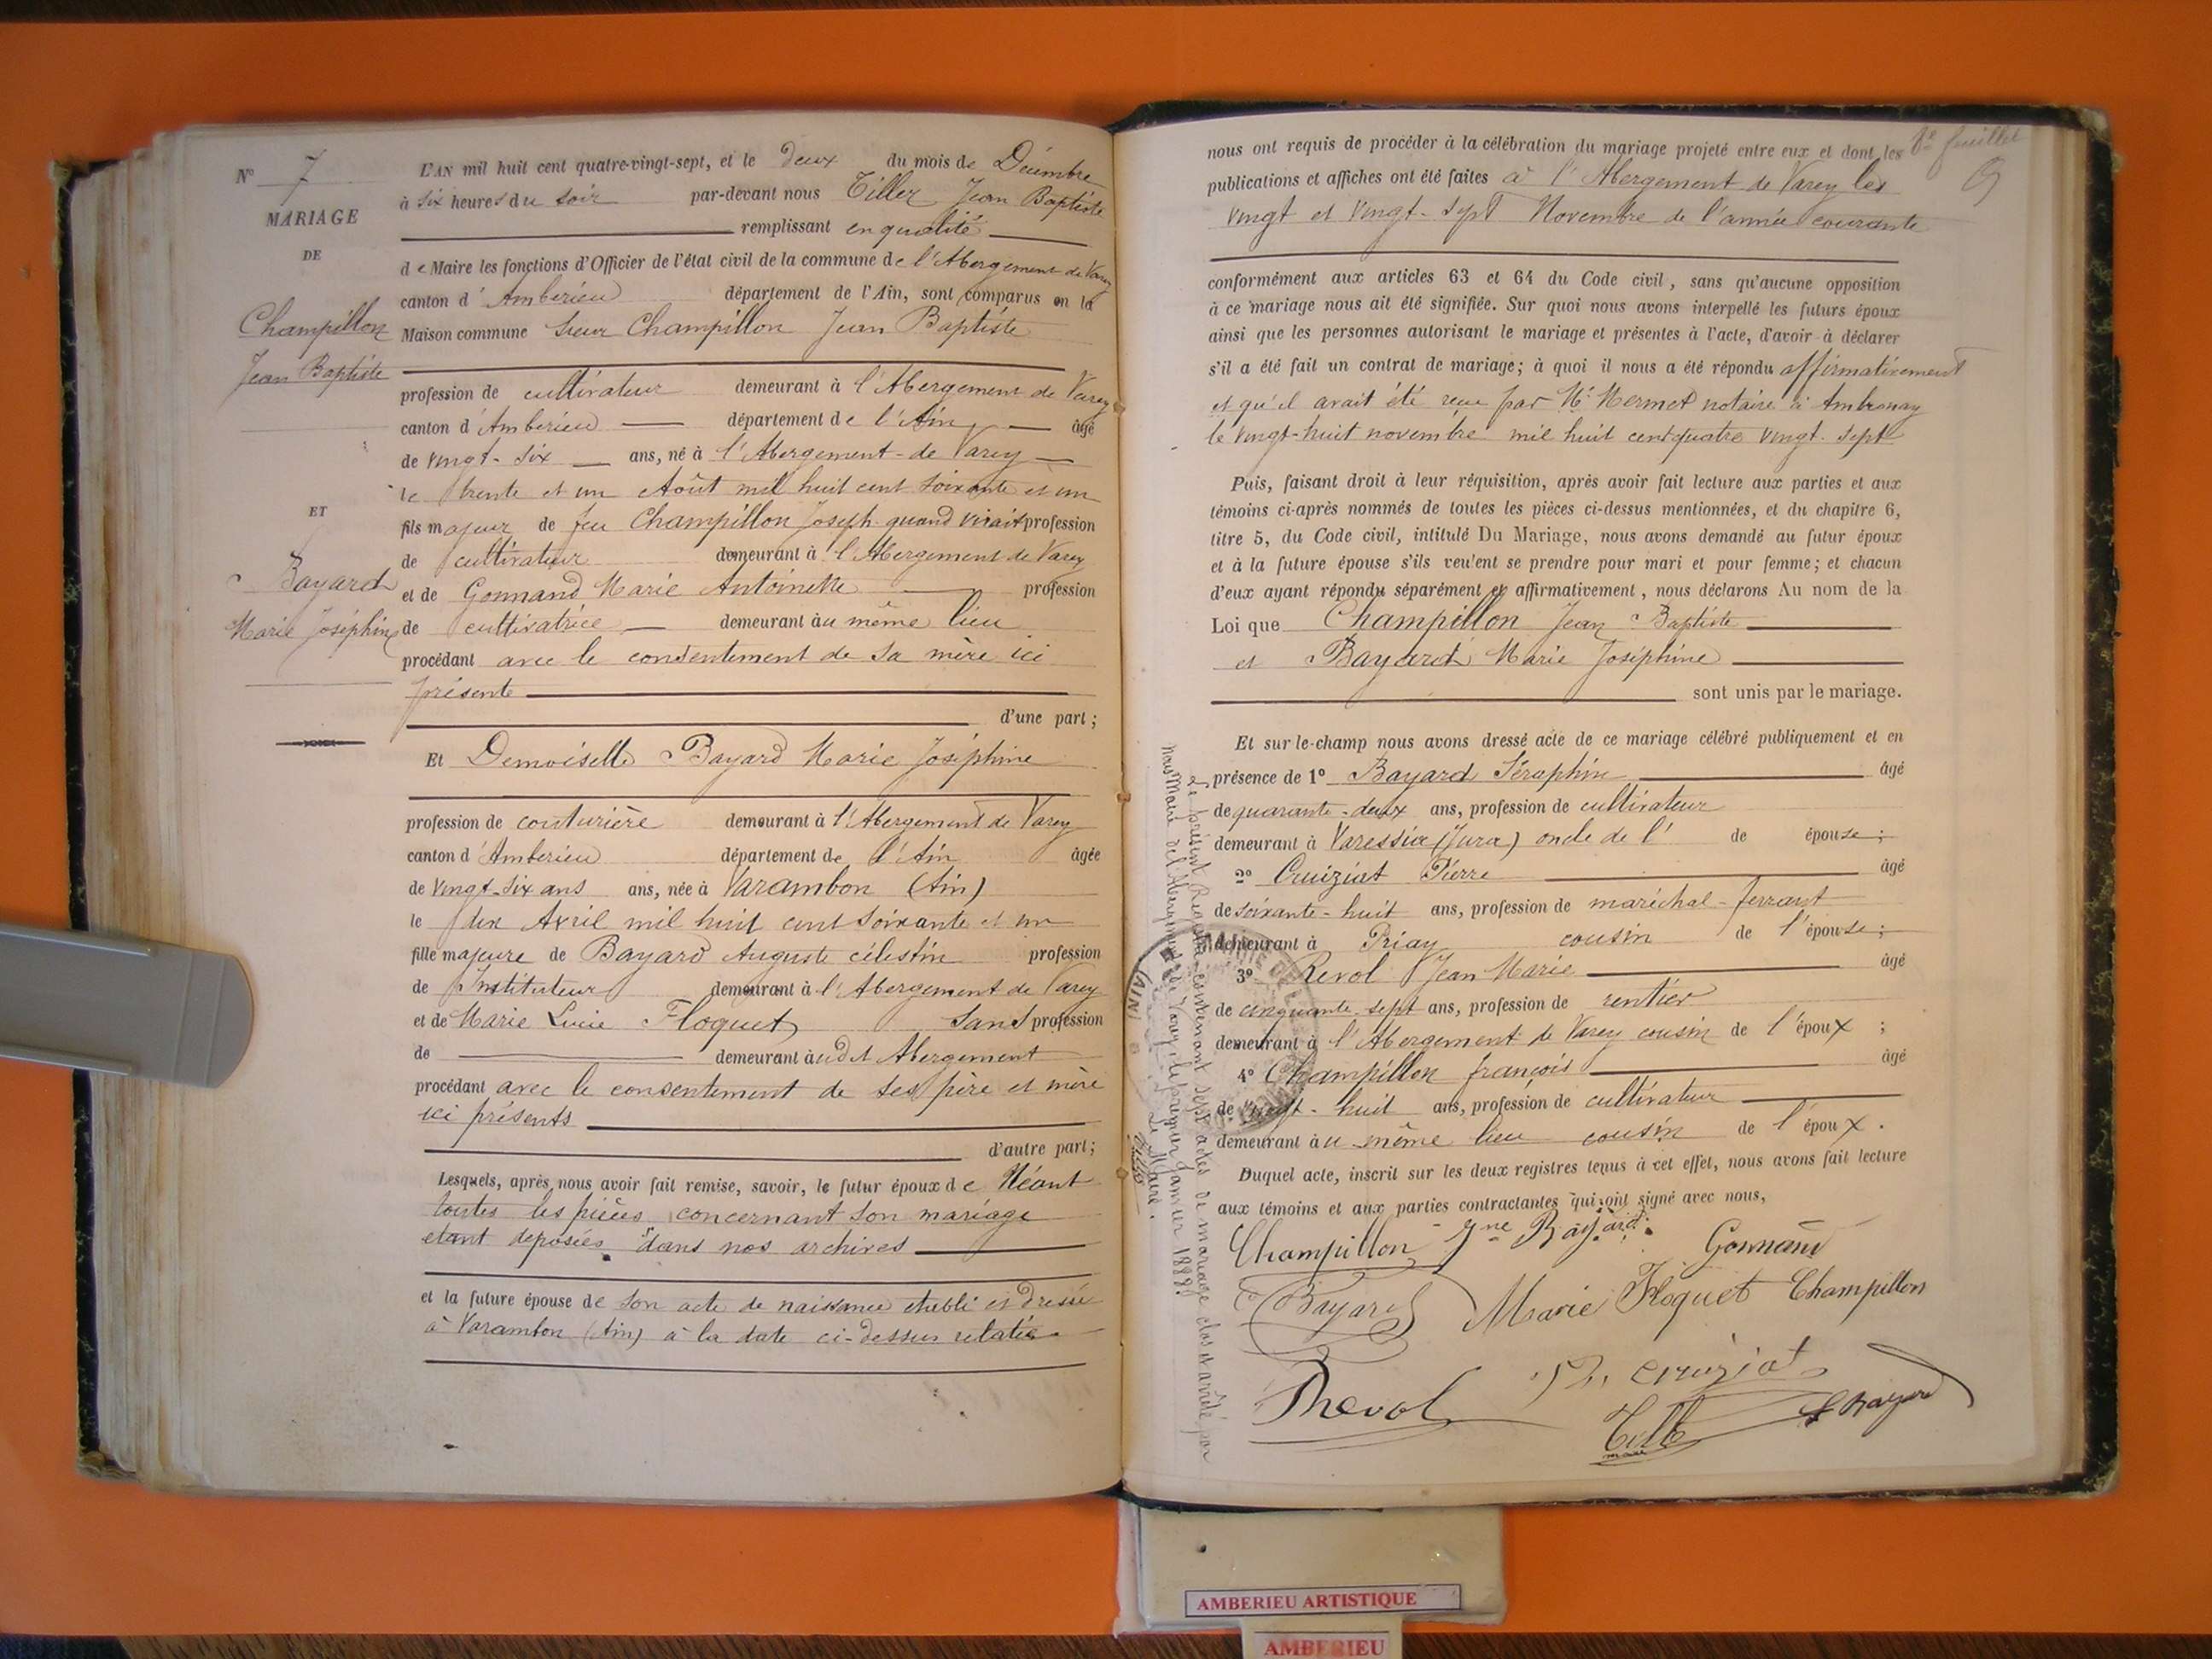 N° 7
MARIAGE
DE
Champillon
Jean Baptiste
ET
Bayard
Marie Joséphine
L'AN mil huit cent quatre-vingt-sept, et le deux du mois de Décembre
à six heures du soir par-devant nous Tiller Jean Baptiste
remplissant en qualité
de Maire les fonctions d'Officier de l'état civil de la commune de l'Abergement de Varey
canton d'Amberieu département de l'Ain, sont comparus en la
Maison commune Sieur Champillon Jean Baptiste
profession de cultivateur demeurant à l'Abergement de Varey
canton d'Amberieu département de l'Ain, âgé
de vingt-six ans, né à l'Abergement-de Varey
le trente et un Août mil huit cent soixante et un
fils majeur de feu Champillon Joseph quand vivait profession
de cultivateur demeurant à l'Abergement de Varey
et de Gonnand Marie Antoinette profession
de cultivatrice demeurant au même lieu
procédant avec le consentement de sa mère ici
présente
d'une part;
Et Demoiselle Bayard Marie Joséphine
profession de couturière demeurant à l'Abergement de Varey
canton d'Amberieu département de l'Ain âgée
de vingt-six ans ans, née à Varambon (Ain)
le dix Avril mil huit cent soixante et un
fille majeure de Bayard Auguste célestin profession
de Instituteur demeurant à l'Abergement de Varey
et de Marie Lucie Floquet Sans profession
de demeurant audit Abergement
procédant avec le consentement de ses père et mère
ici présents
d'autre part;
Lesquels, après nous avoir fait remise, savoir, le futur époux de Néant
toutes les pièces concernant son mariage
etant deposées dans nos archives
et la future épouse de son acte de naissance etabli et dressé
à Varambon (Ain) à la date ci-dessus relatée
feuillet
nous ont requis de procéder à la célébration du mariage projeté entre eux et dont les
publications et affiches ont été faites à l'Abergement de Varey les
vingt et vingt-sept Novembre de l'année courante
conformément aux articles 63 et 64 du Code civil, sans qu'aucune opposition
à ce mariage nous ait été signifiée. Sur quoi nous avons interpellé les futurs époux
ainsi que les personnes autorisant le mariage et présentes à l'acte, d'avoir à déclarer
s'il a été fait un contrat de mariage; à quoi il nous a été répondu affirmativement
et qu'il avait été reçu par Me Mermet notaire à Ambronay
le vingt-huit novembre mil huit cent quatre vingt-sept
Puis, faisant droit à leur réquisition, après avoir fait lecture aux parties et aux
témoins ci-après nommés de toutes les pièces ci-dessus mentionnées, et du chapitre 6,
titre 5, du Code civil, intitulé Du Mariage, nous avons demandé au futur époux
et à la future épouse s'ils veulent se prendre pour mari et pour femme; et chacun
d'eux ayant répondu séparément et affirmativement, nous déclarons Au nom de la
Loi que Champillon Jean Baptiste
et Bayard Marie Joséphine
sont unis par le mariage.
Et sur-le-champ nous avons dressé acte de ce mariage célébré publiquement et en
présence de 1° Bayard Séraphin âgé
de quarante-deux ans, profession de cultivateur
demeurant à Varessia (Jura) oncle de l' de épouse;
2° Cruiziat Pierre âgé
de soixante-huit ans, profession de maréchal-ferrant
demeurant à Priay cousin de l'épouse;
3° Revol Jean Marie âgé
de cinquante-sept ans, profession de rentier
demeurant à l'Abergement de Varey cousin de l'époux;
4° Champillon françois âgé
de vingt-huit ans, profession de cultivateur
demeurant au même lieu cousin de l'époux.
Duquel acte, inscrit sur les deux registres tenus à cet effet, nous avons fait lecture
aux témoins et aux parties contractantes qui ont signé avec nous,
Champillon Jne Bayard Gonnand
Bayard Marie Floquet Champillon
Revol Cruiziat
Bayard
Tiller
maire
Le présent Registre contenant sept actes de mariage clos et arrêté par
Nous Maire de l'Abergement de Varey le premier Janvier 1888.
Le Maire.
Tiller
MAIRIE DE L'
(AIN)
AMBERIEU ARTISTIQUE
AMBERIEU